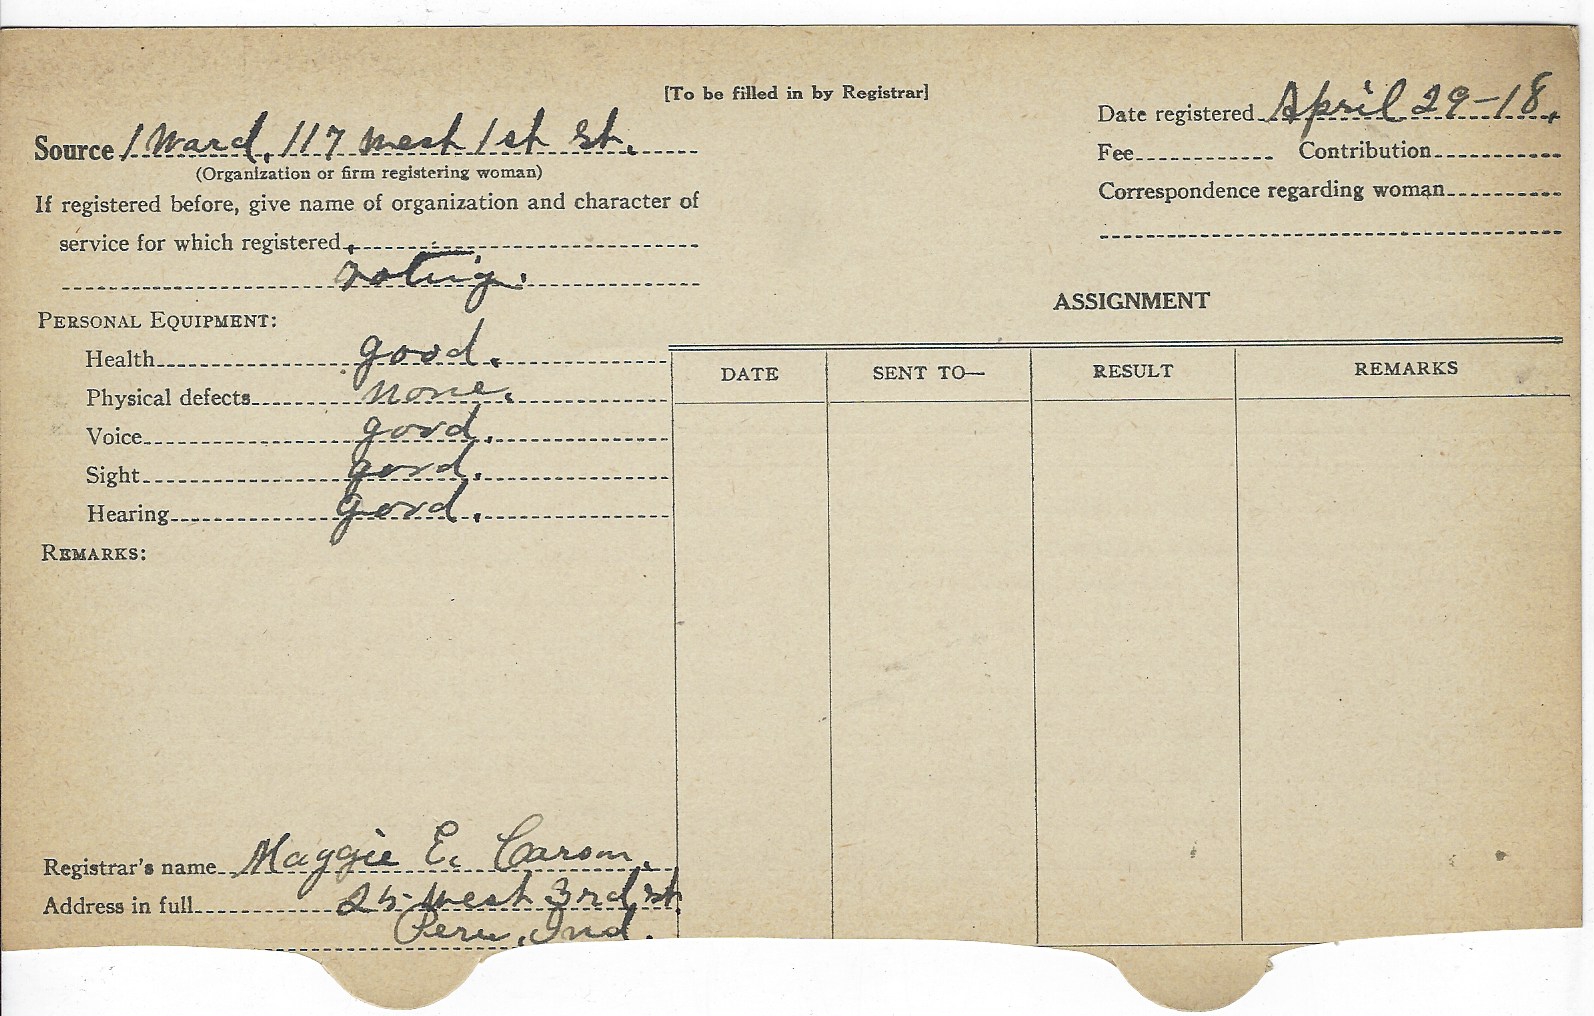 [To be filled in by Registrar]
Source 1 Ward, 117 West 1st St.
(Organization or firm registering woman)
If registered before, give name of organization and character of
service for which registered
voting.
Date registered April 29-18.
Fee Contribution
Correspondence regarding woman
PERSONAL EQUIPMENT:
Health good.
Physical defects none.
Voice good.
Sight good.
Hearing good.
REMARKS:
ASSIGNMENT
DATE SENT TO— RESULT REMARKS
Registrar's name Maggie E. Carson.
Address in full 25 West 3rd St.
Peru, Ind.